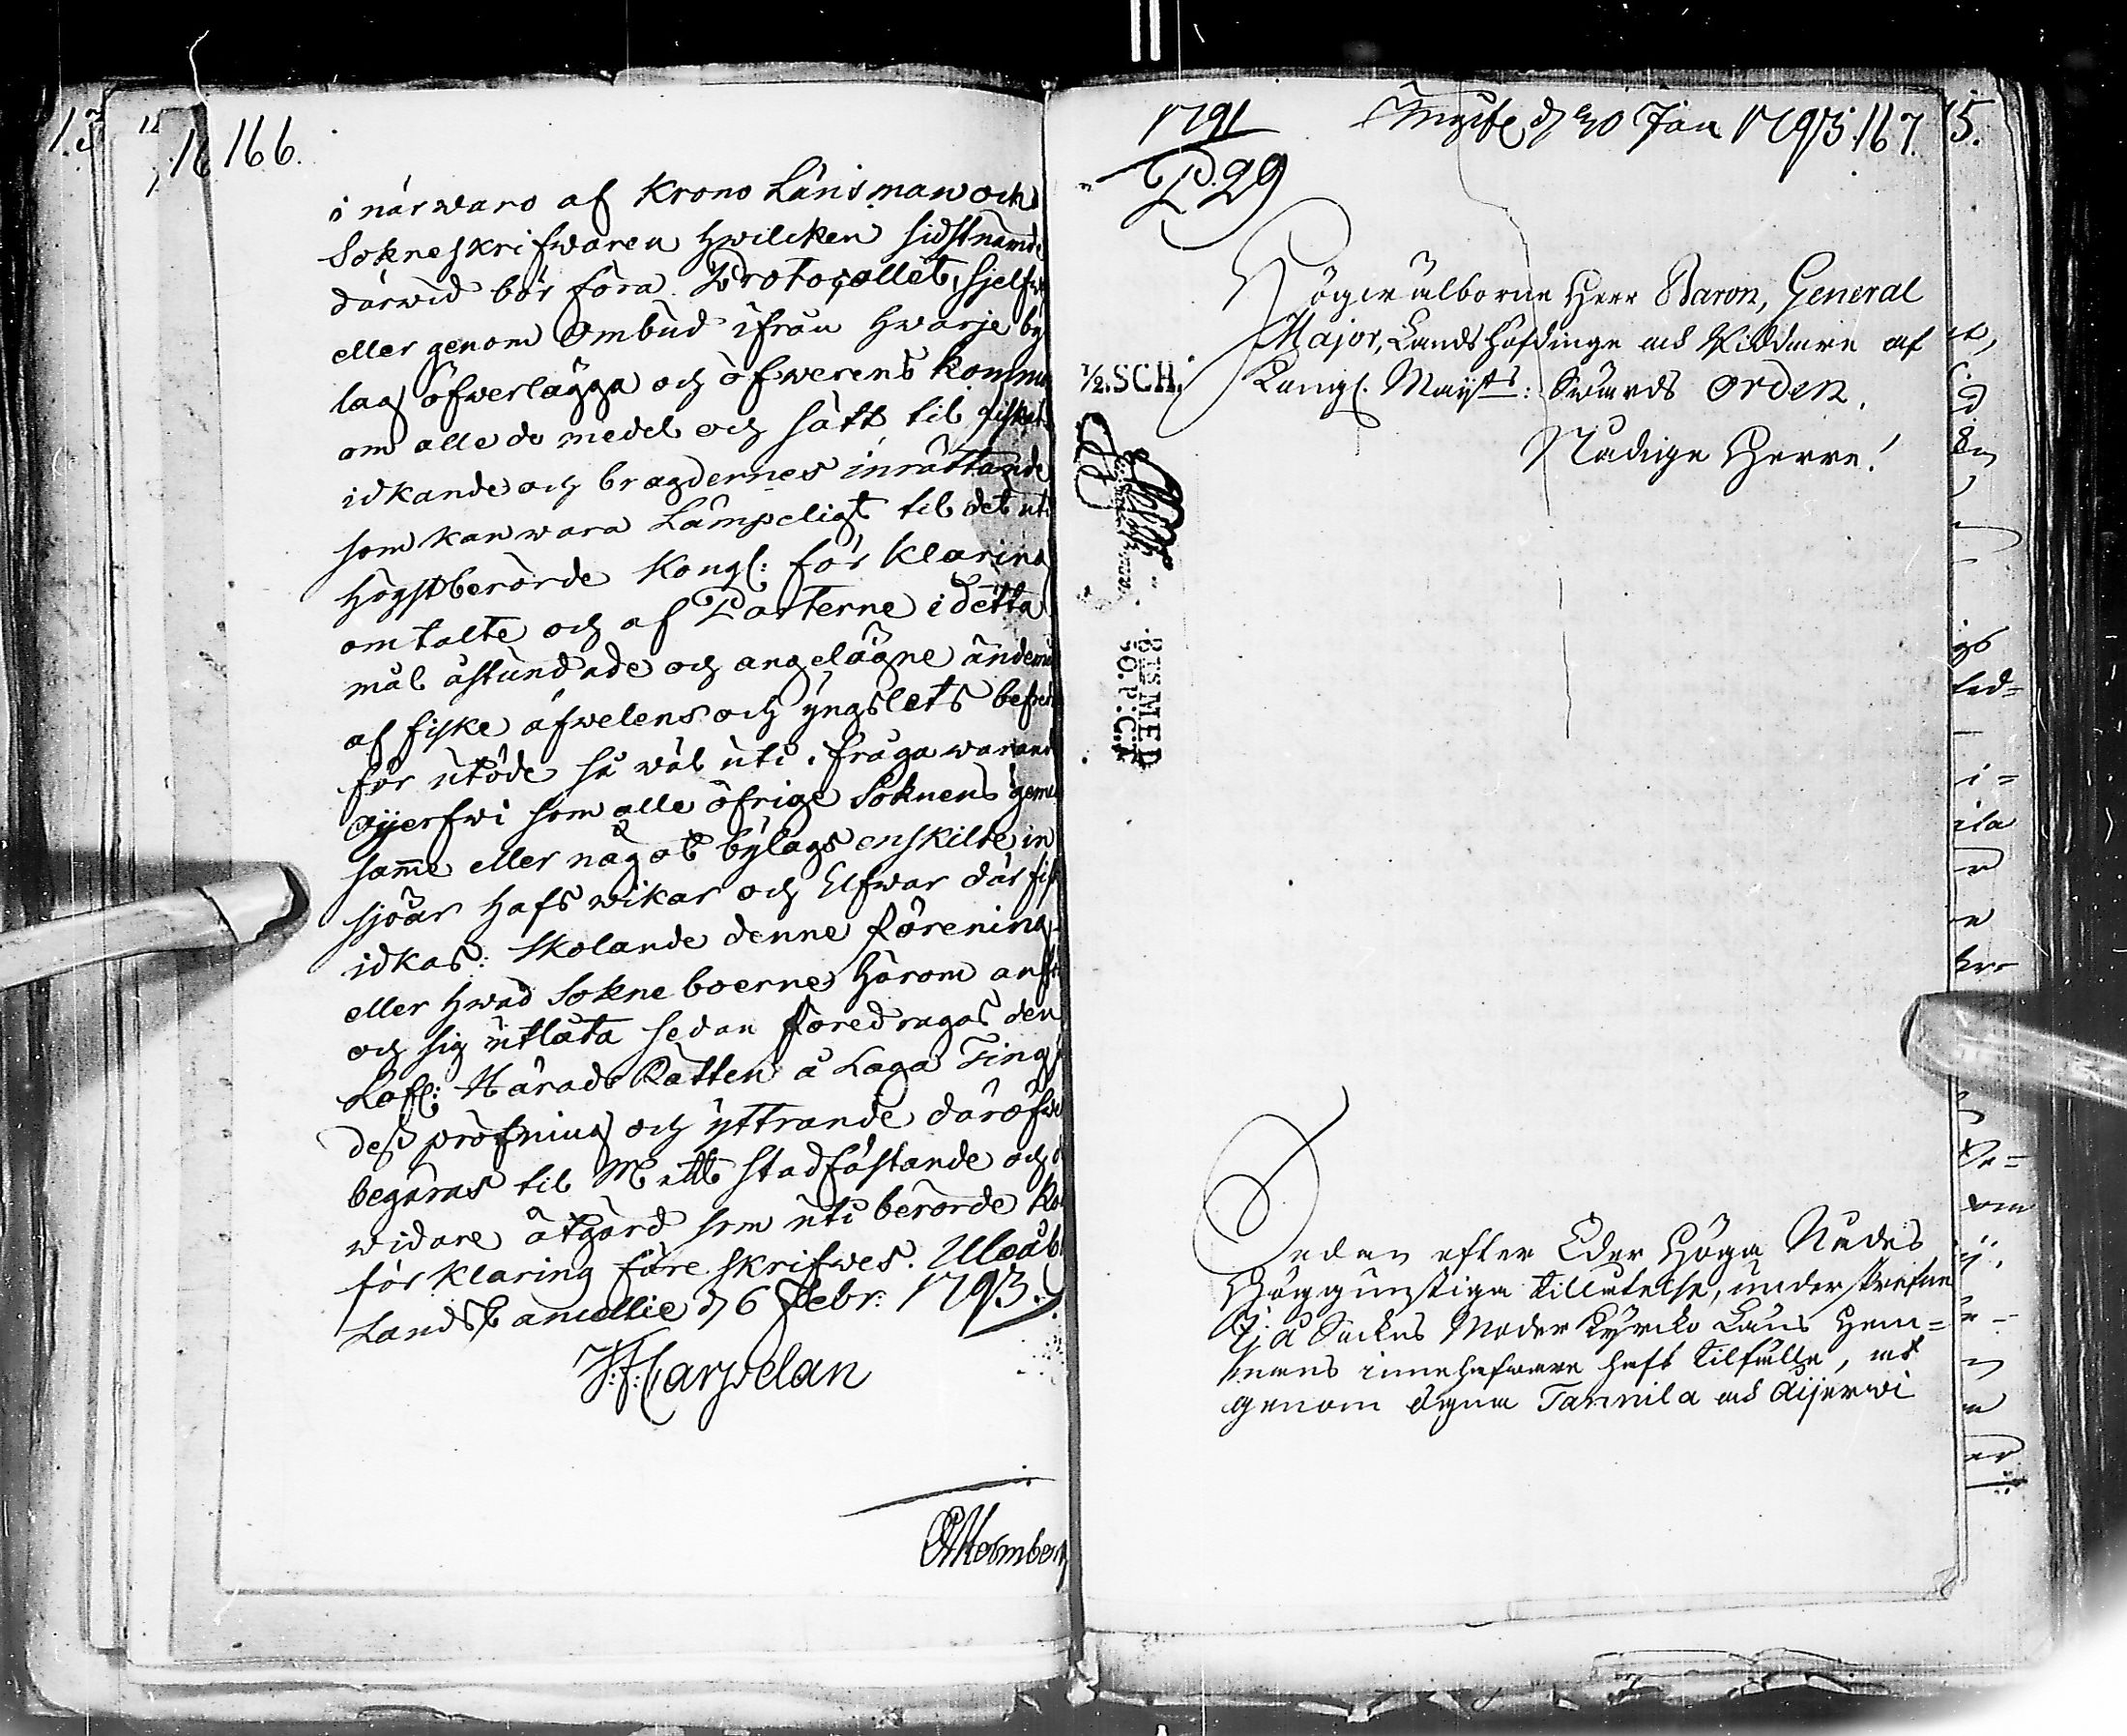 166.
i närwaro af Krono Länsman och
Sokneskrifwaren hwilcken sidstnämde
därwid bör föra Protocollet, sjelfwe
eller genom Ombud ifrån hwarje by
lag öfwerlägga och öfwerens komma
om alle de medel och sätt til fiskets
idkande och bragdernes inrättande
som kan wara Lämpeligt til det uti
Högstberörde Kongl: för klaring
omtalte och af Parterne i detta
mål åstundade och angelägne ändemål
af fiske afwelens och yngslets befred
för utöde så wäl uti i fråga warand
Oijerfwi som alle öfrige Soknens gemen
same eller något bylags enskilte in
sjöar Hafs wikar och Elfwar där fisk
idkas: skolande denne förening
eller hwad Sokneboerne härom anf
och sig utlåta sedan föredragas den
Lofl: Härads Rätten å Laga Ting
dess pröfning och yttrande däröfwe
begäras til Mitt stadfästande och
widare åtgärd som uti berörde Ko
förklaring före skrifwes. Uleåb
Lands Cancellie d 6 Febr: 1793.
J: F: Carpelan
Holmberg
1791
P. 29
d 30 Jan 1793. 167.
Högwälborne Herr Baron, General
Major, Landshöfdinge och Riddare af
Kongl. Mayts: Swärds Orden.
Nådige Herre!
1/2. SCH.
Sedan efter Eder Höga Nådes
Höggunstiga tillåtelse, underskrefne
Ijå Sockns Moder Kyrcko Lans Hem=
mans innehafware haft tilfälle, at
genom Ägna Tannila och Oijerwi
15.